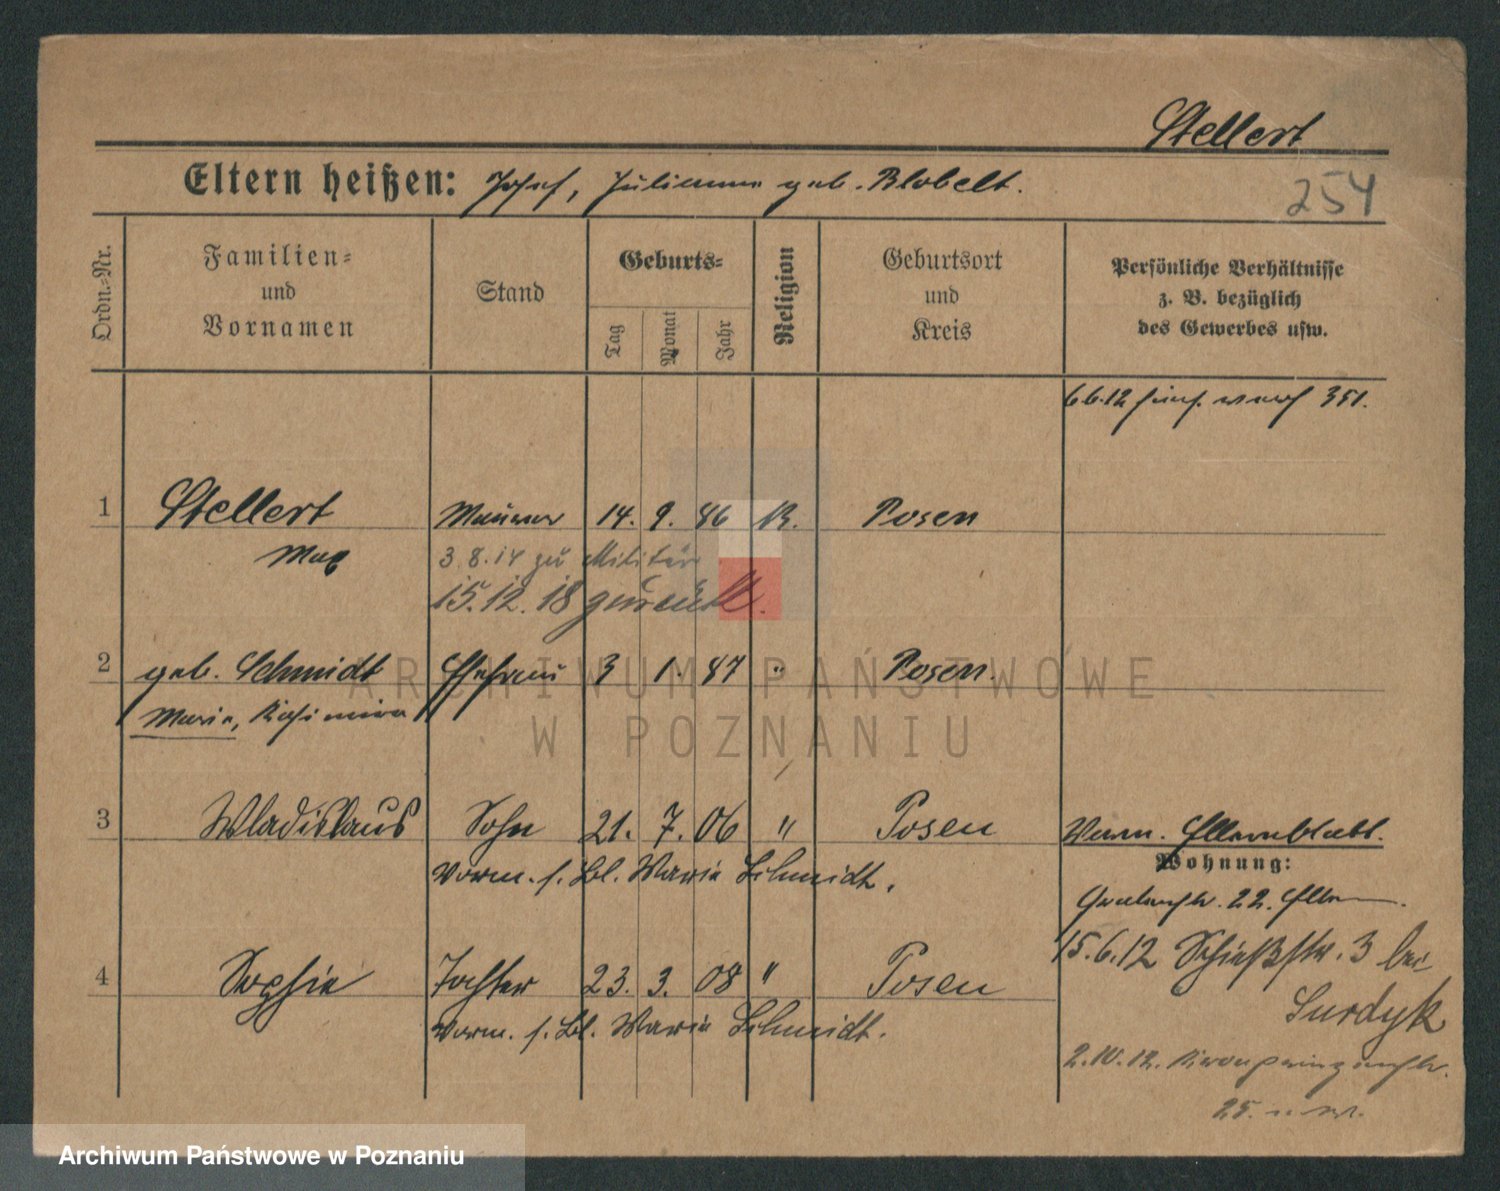 Stellert
Eltern heißen: Josef, Julianna geb. Blobelt.
254
Ordn.-Nr.
Familien-
und
Vornamen
Stand
Geburts-
Tag
Monat
Jahr
Religion
Geburtsort
und
Kreis
Persönliche Verhältnisse
z. B. bezüglich
des Gewerbes usw.
6.6.12 351.
1 Stellert Maurer 14. 9. 86 K. Posen
Max 3.8.14 zu Militär
15.12.18 zurück.
2 geb. Schmidt Ehefrau 3 1. 87 " Posen.
Maria, Kasimira
3 Wladislaus Sohn 21. 7. 06 " Posen
Verm. Elternblatt.
vorm. s. Bl. Maria Schmidt.
Wohnung:
22. Eltern
15.6.12 Schießstr. 3 bei
Surdyk
4 Sophie Tochter 23. 3. 08 " Posen
vorm. s. Bl. Maria Schmidt.
2.10.12. Kronprinzenstr.
25.
ARCHIWUM PAŃSTWOWE
W POZNANIU
Archiwum Państwowe w Poznaniu